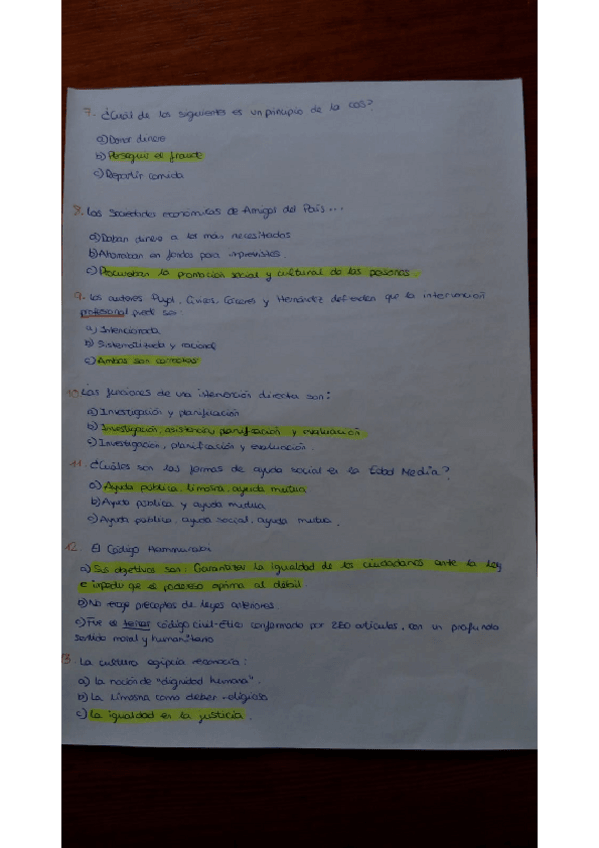 7. ¿Cuál de los siguientes es un principio de la COS?
a) Donar dinero
b) Perseguir el fraude
c) Repartir comida
8. Las Sociedades económicas de Amigos del País...
a) Daban dinero a los más necesitados
b) Ahorraban en fondos para imprevistos
c) Procuraban la promoción social y cultural de las personas.
9. Los autores Puyol, Cáceres y Hernández defienden que la intervención
profesional puede ser:
a) Intencionada
b) Sistematizada y racional
c) Ambas son correctas
10. Las funciones de una intervención directa son:
a) Investigación y planificación
b) Investigación, asistencia, planificación y evaluación
c) Investigación, planificación y evaluación.
11. ¿Cuáles son las formas de ayuda social en la Edad Media?
a) Ayuda pública, limosna, ayuda mutua
b) Ayuda pública y ayuda mutua
c) Ayuda pública, ayuda social, ayuda mutua.
12. El Código Hammurabi
a) Sus objetivos son: Garantizar la igualdad de los ciudadanos ante la ley
e impedir que el poderoso oprima al débil
b) No recoge preceptos de leyes anteriores
c) Fue el código civil-ético conformado por 280 artículos, con un profundo
sentido moral y humanitario
13. La cultura egipcia reconocía:
a) la noción de "dignidad humana".
b) La limosna como deber religioso
c) La igualdad en la justicia.